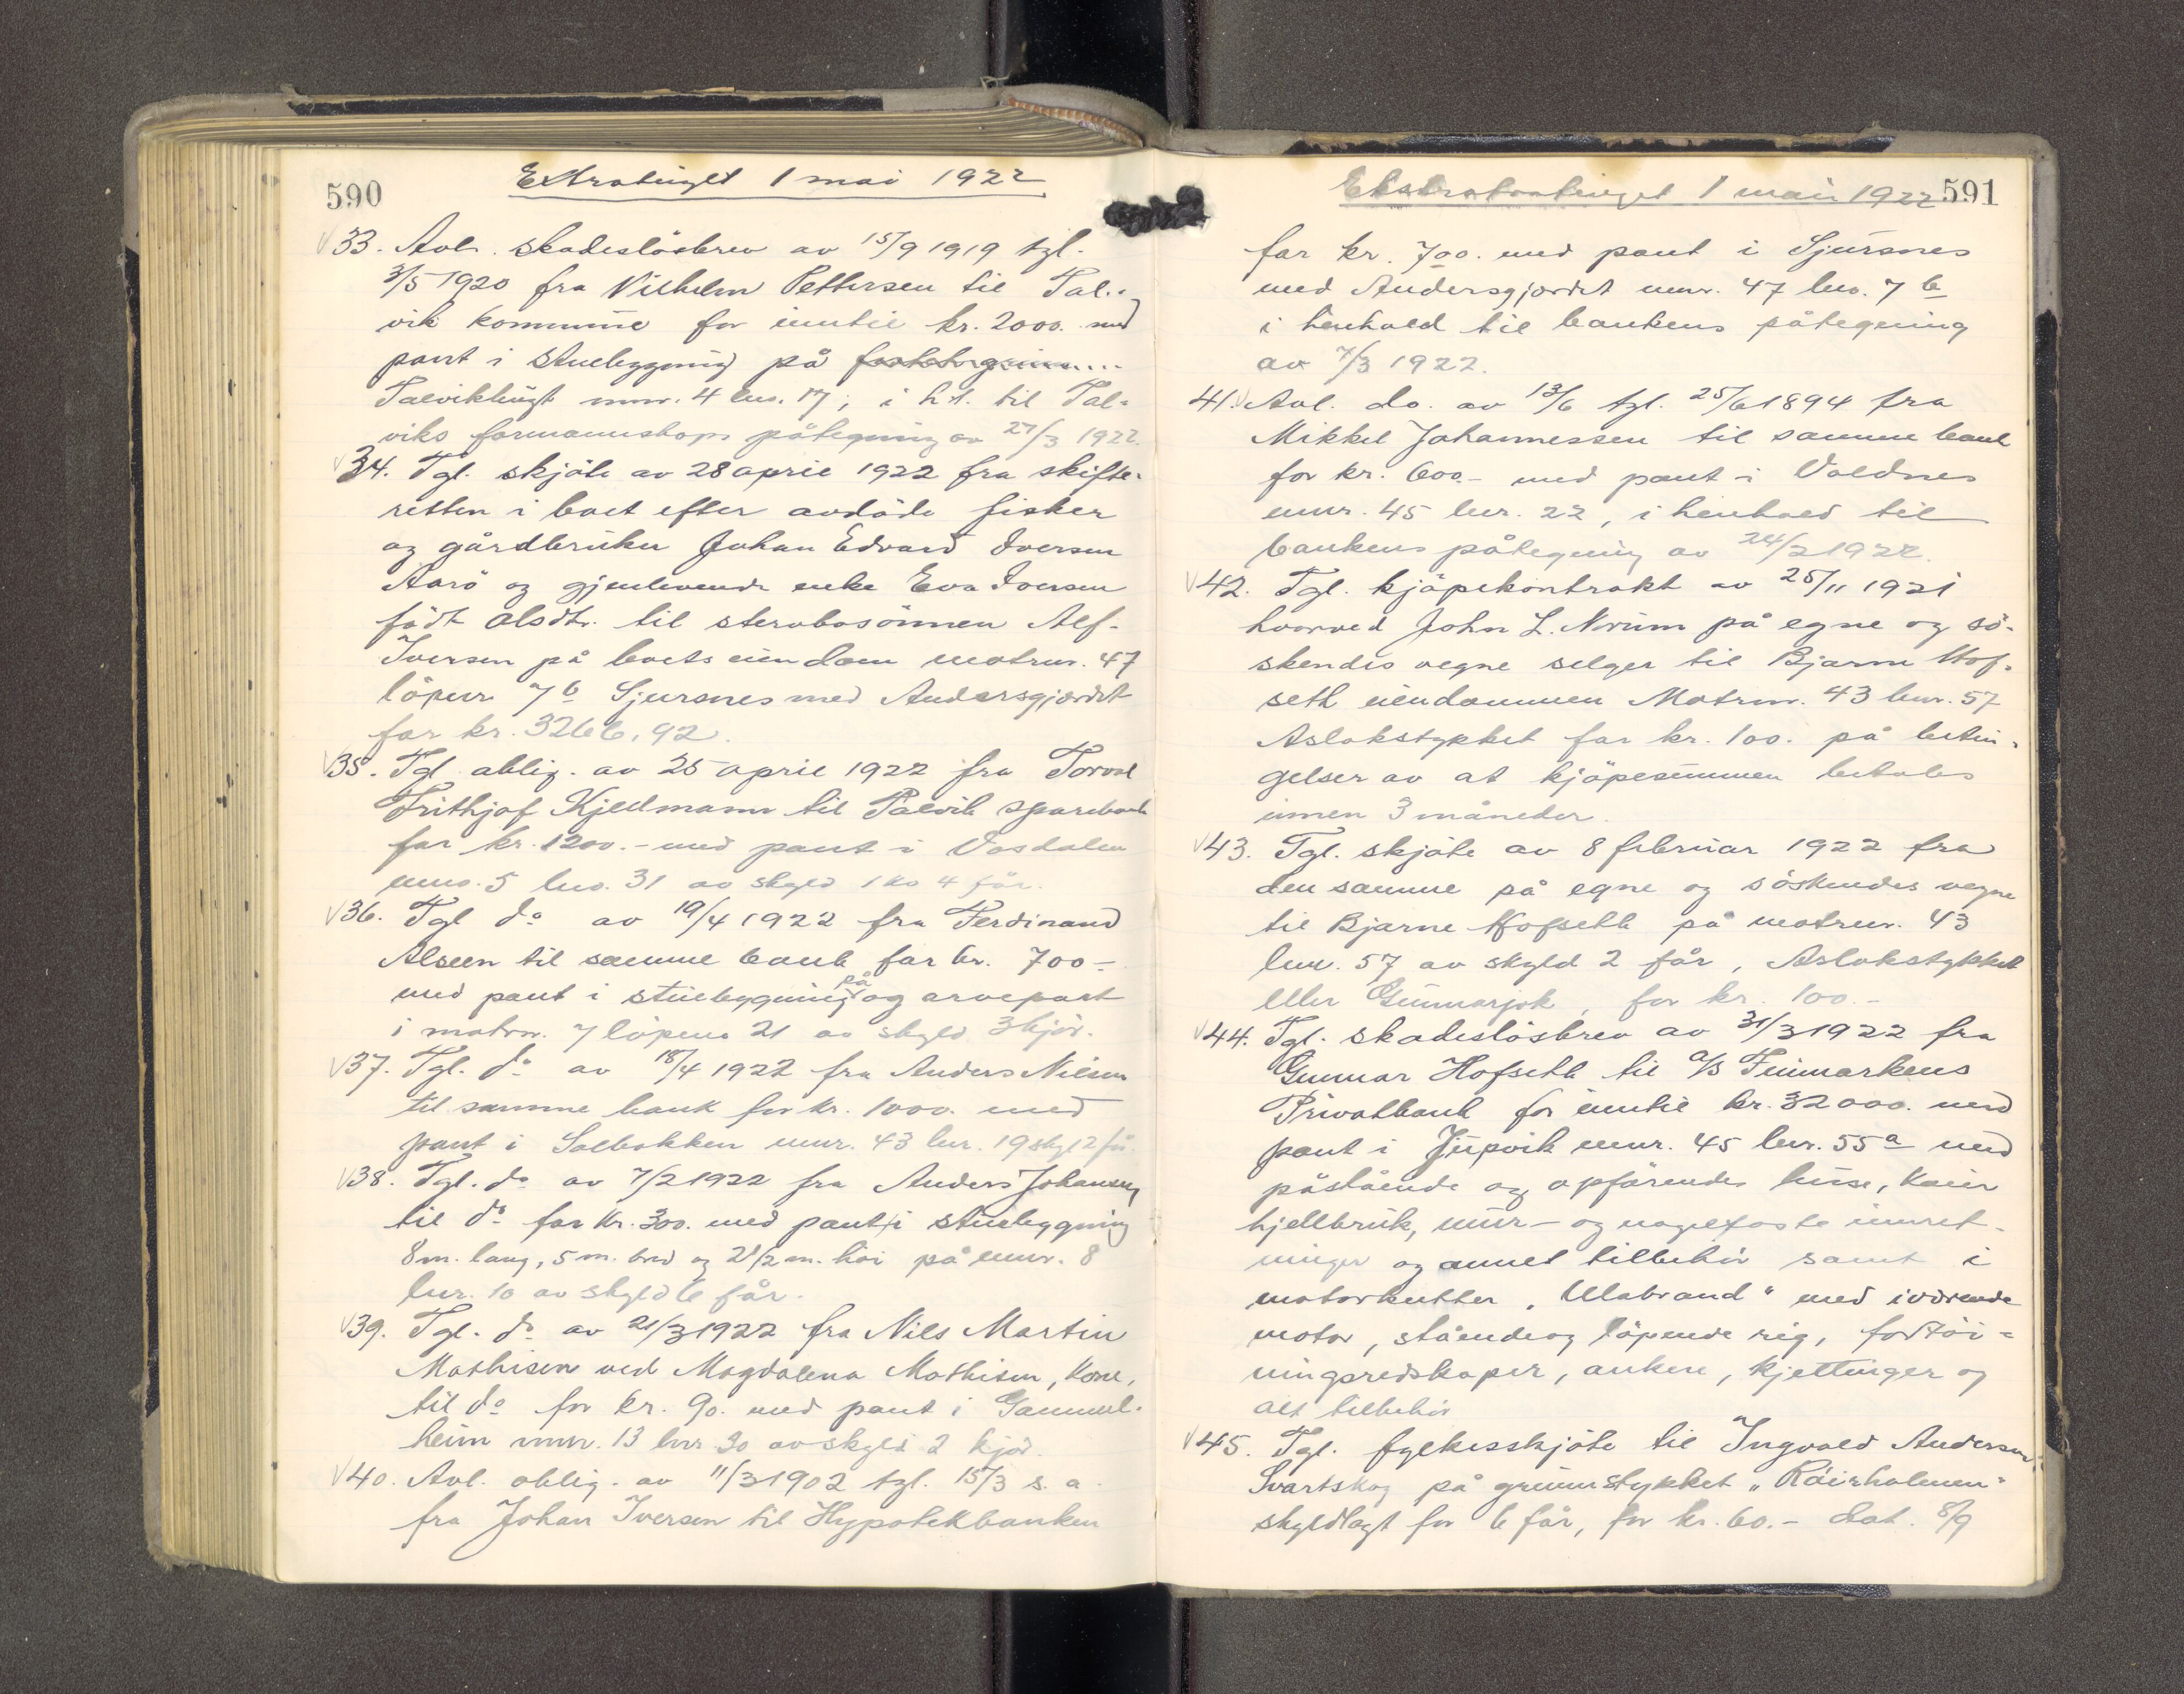 590
Extratinget 1 mai 1922
33. Avl. skadeslösbrev av 15/9 1919 tgl.
3/5 1920 fra Vilhelm Pettersen til Tal-
vik kommune for inntil kr. 2000. med
pant i stuebygning på
Talviklingt mnr. 4 lnr. 17, i h.t. til Tal-
viks formannskaps påtegning av 27/3 1922.
34. Tgl. skjöte av 28 april 1922 fra skifte-
retten i boet efter avdöde fisker
og gårdbruker Johan Edvard Iversen
Aarö og gjenlevende enke Eva Iversen
födt Olsdtr. til stervbosönnen Alf
Iversen på boets eiendom matrnr. 47
löpnr 7 b Sjursnes med Andersgjordet
for kr. 3266,92.
35. Tgl. oblig. av 25 april 1922 fra Torval
Frithjof Kjeldmann til Talvik sparebank
for kr. 1200.- med pant i Vasdalen
mnr. 5 lnr. 31 av skyld 1 ko 4 får.
36. Tgl do av 19/4 1922 fra Ferdinand
Alseen til samme bank for kr. 700-
med pant i stuebygning på og arvepart
i matrnr. 7 löpenr 21 av skyld 3 kjör.
37. Tgl. do av 18/4 1922 fra Anders Nilsen
til samme bank for kr. 1000. med
pant i Solbakken mnr. 43 lnr. 19 skyl 2 få.
38. Tgl. do av 7/2 1922 fra Anders Johansen
til do for kr. 300. med pant i stuebygning
8 m. lang, 5 m. bred og 2 1/2 m. höi på mnr. 8
lnr. 10 av skyld 6 får.
39. Tgl. do av 21/3 1922 fra Nils Martin
Mathisen ved Magdalena Mathisen, kone,
til do for kr. 90. med pant i Gammel-
heim mnr. 13 lnr 30 av skyld 2 kjör.
40. Avl. oblig. av 11/3 1902 tgl. 15/3 s. a.
fra Johan Iversen til Hypotekbanken
Ekstratinget 1 mai 1922
591
for kr. 700. med pant i Sjursnes
med Andersgjordet mnr. 47 lnr. 7 b
i henhold til bankens påtegning
av 7/3 1922.
41. Avl. do. av 13/6 tgl. 25/6 1894 fra
Mikkel Johannessen til samme bank
for kr. 600.- med pant i Voldnes
mnr. 45 lnr. 22, i henhold til
bankens påtegning av 24/2 1922.
42. Tgl. kjöpekontrakt av 25/11 1921
hvorved John L. Norum på egne og sö-
skendes vegne selger til Bjarne Hof-
seth eiendommen Matrnr. 43 lnr. 57
Aslakstykket for kr. 100. på betin-
gelser av at kjöpesummen betales
innen 3 måneder.
43. Tgl. skjöte av 8 februar 1922 fra
den samme på egne og söskendes vegne
til Bjarne Hofseth på matrnr. 43
lnr. 57 av skyld 2 får, Aslakstykket
eller Gunnarjok, for kr. 100.-
44. Tgl. skadeslösbrev av 31/3 1922 fra
Gunnar Hofseth til A/S Finmarkens
Privatbank for inntil kr. 32000. med
pant i Jupvik mnr. 45 lnr. 55 a med
påstående og opförendes huse, kaier
hjellbruk, mur- og nagelfaste innret-
ninger og annet tilbehör samt i
motorkutter "Ulabrand" med iværende
motor, stående og löpende rig, fortöi-
ningsredskaper, ankere, kjettinger og
alt tilbehör
45. Tgl. fylkesskjöte til Ingvald Andersen,
Svartskog på grunnstykket "Råirholmen"
skyldlagt for 6 får, for kr. 60.- dat. 8/9